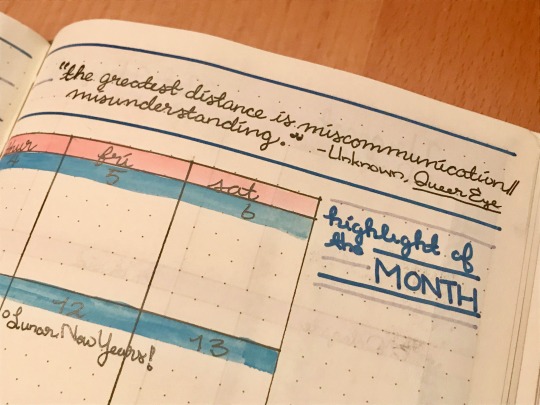 "the greatest distance is miscommunication//
misunderstanding."
-Unknown, Queer Eye
thur fri sat
4 5 6
highlight of
the MONTH
12 13
Lunar New Years!